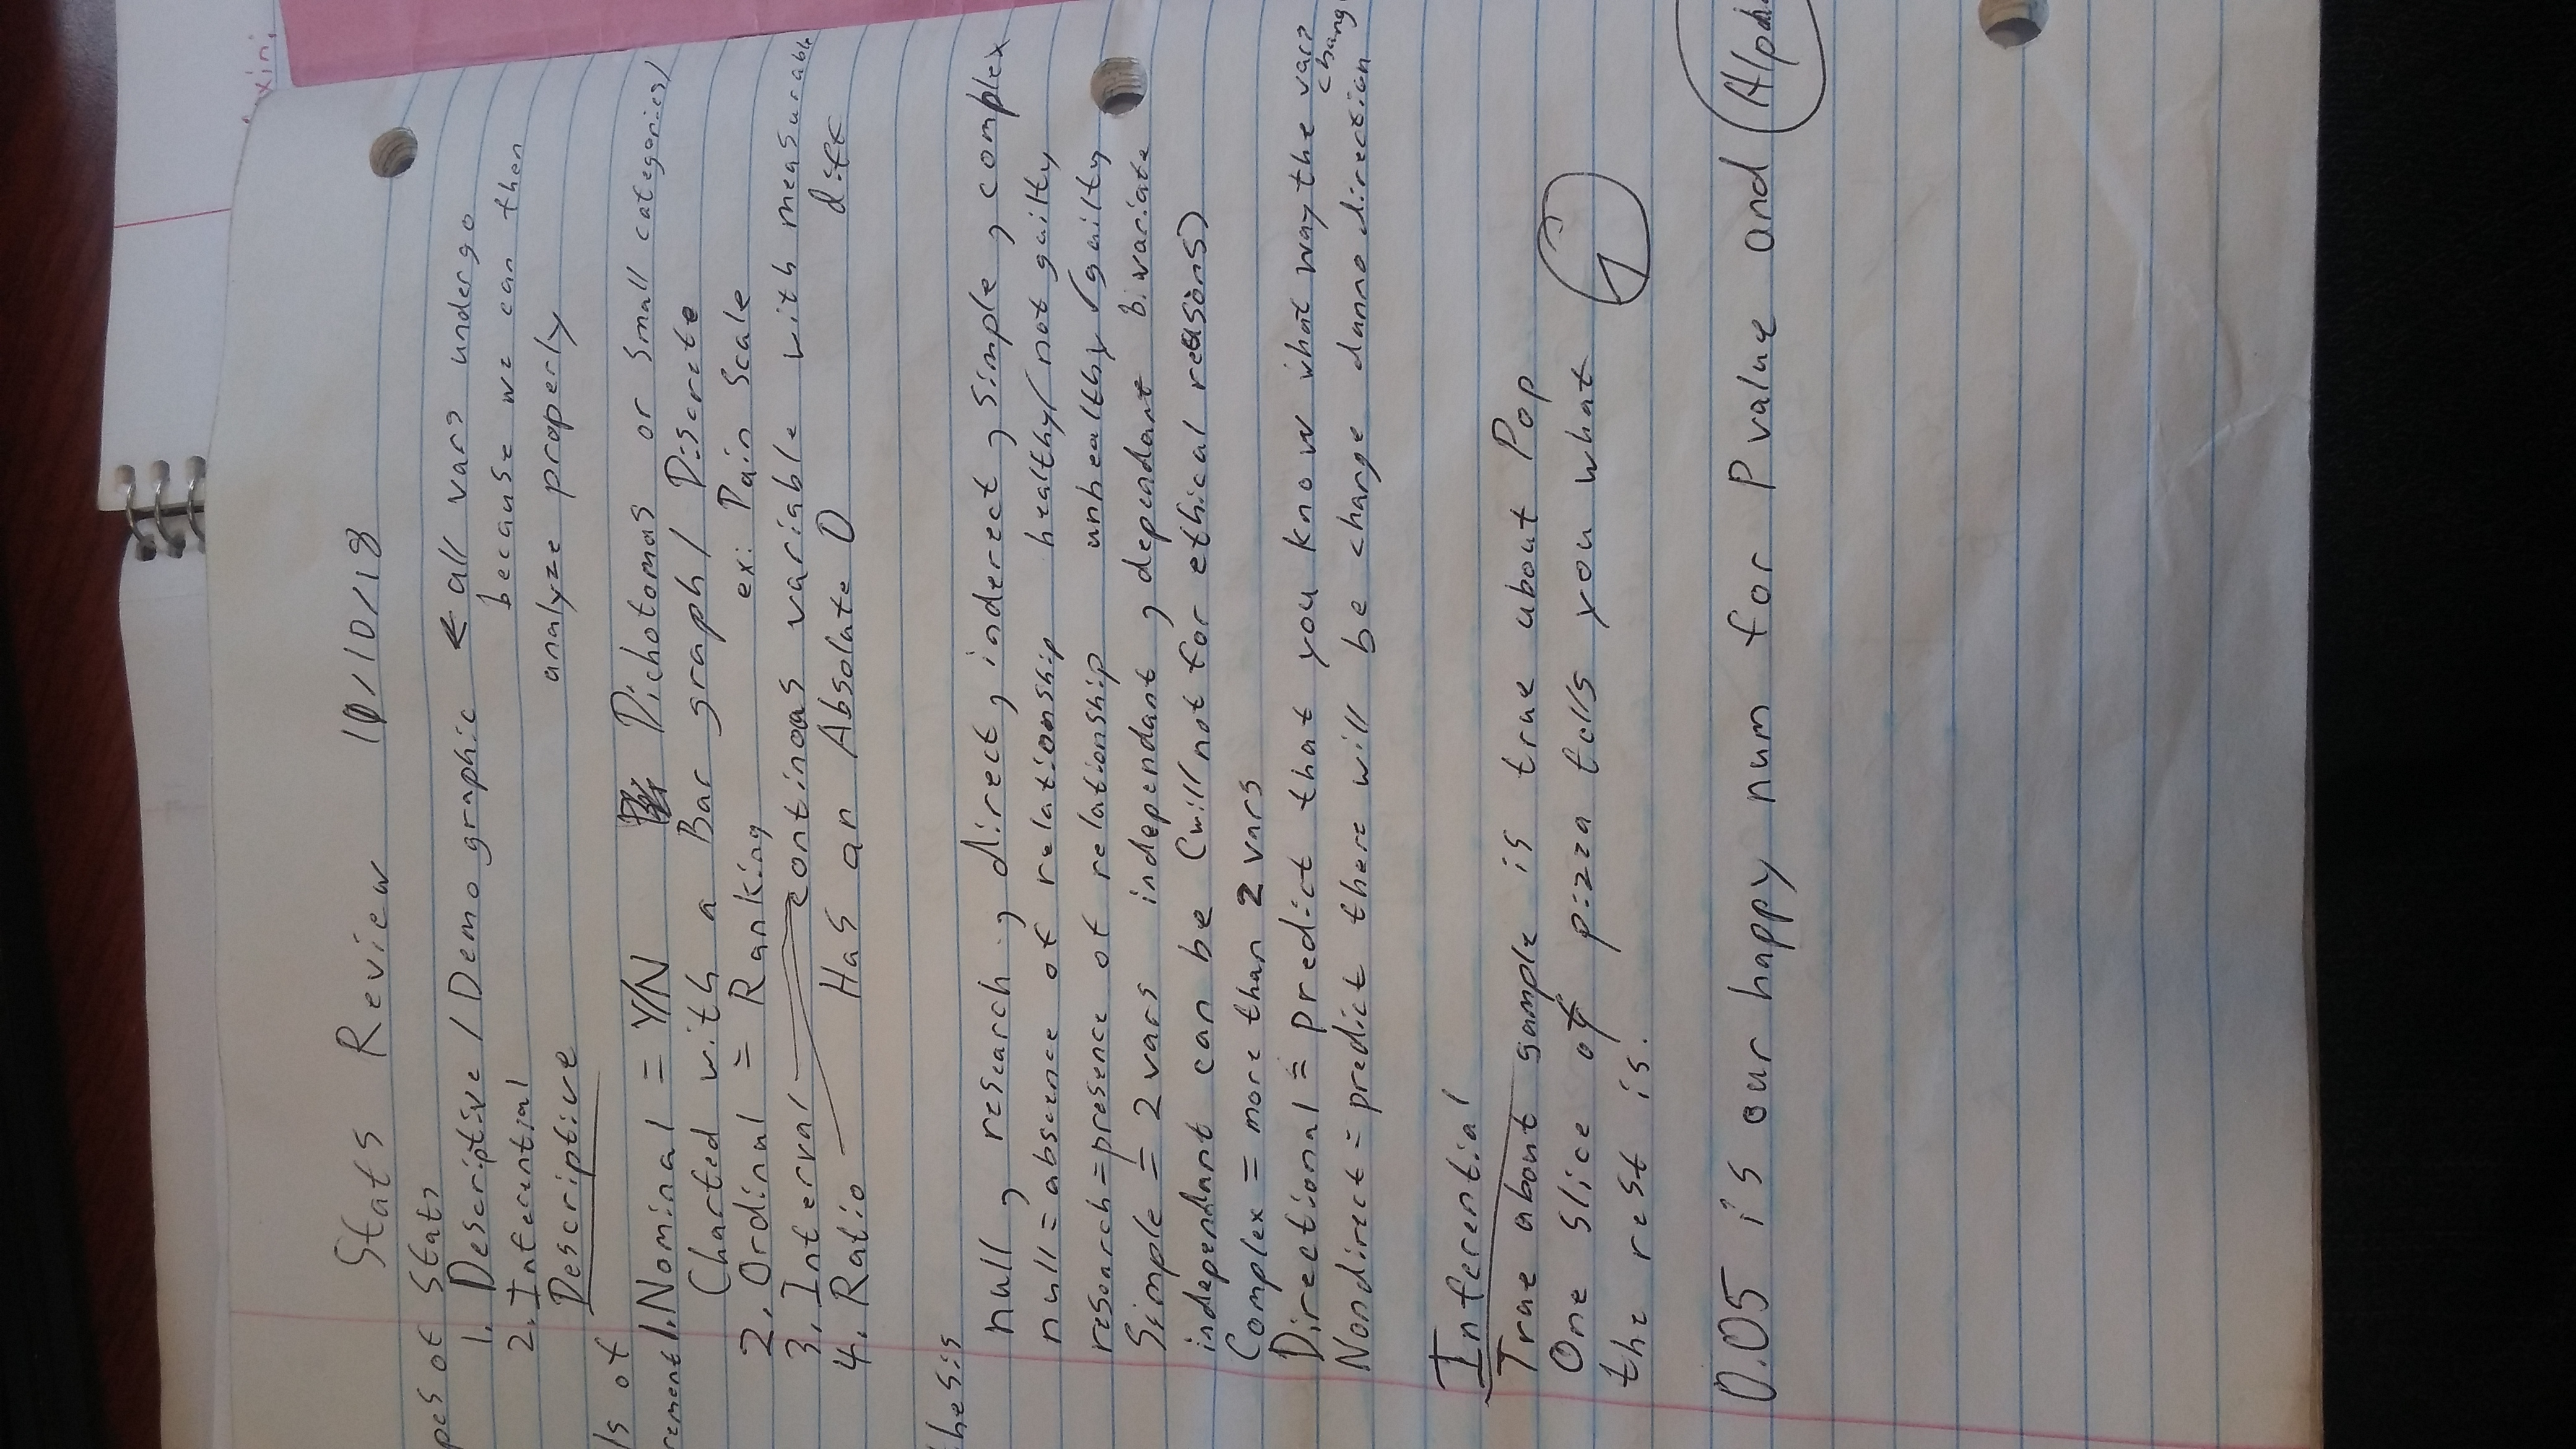 Stats Review 10/10/18
pes of Stats
1. Descriptive / Demographic ← all vars undergo
2. Inferential because we can then
analyze properly
Descriptive
ls of
rement 1. Nominal = Y/N Dichotomas or small categories/
Charted with a Bar graph / Discrete
2. Ordinal = Ranking ex: Pain Scale
3. Interval continous variable with measurable
4. Ratio Has an Absolute 0 diff
hesis
null, research, direct, inderect, simple, complex
null = absence of relationship healthy/not guilty
research = presence of relationship unhealthy/guilty
Simple = 2 vars independant, dependant bivariate
independant can be (will not for ethical reasons)
Complex = more than 2 vars
Directional = predict that you know what way the vars change
Nondirect = predict there will be change danno direction
Inferential
True about sample is true about Pop
One slice of pizza tells you what
the rest is.
0.05 is our happy num for P value and Alpha